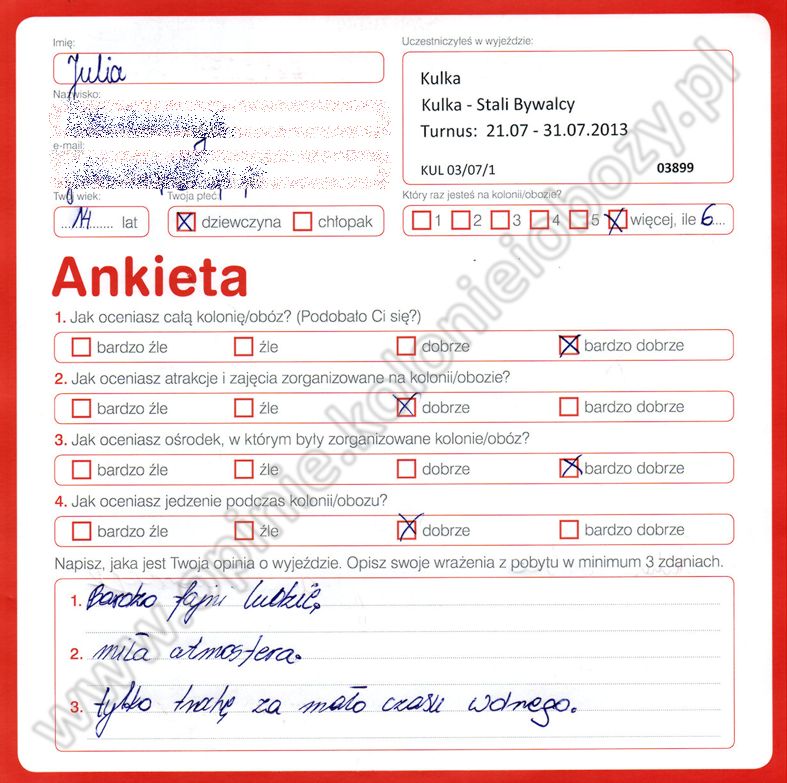 Imię:
Julia
Nazwisko:
e-mail:
Twój wiek:
14 lat
Twoja płeć:
dziewczyna chłopak
Uczestniczyłeś w wyjeździe:
Kulka
Kulka - Stali Bywalcy
Turnus: 21.07 - 31.07.2013
KUL 03/07/1 03899
Który raz jesteś na kolonii/obozie?
1 2 3 4 5 więcej, ile 6
Ankieta
1. Jak oceniasz całą kolonię/obóz? (Podobało Ci się?)
bardzo źle źle dobrze bardzo dobrze
2. Jak oceniasz atrakcje i zajęcia zorganizowane na kolonii/obozie?
bardzo źle źle dobrze bardzo dobrze
3. Jak oceniasz ośrodek, w którym były zorganizowane kolonie/obóz?
bardzo źle źle dobrze bardzo dobrze
4. Jak oceniasz jedzenie podczas kolonii/obozu?
bardzo źle źle dobrze bardzo dobrze
Napisz, jaka jest Twoja opinia o wyjeździe. Opisz swoje wrażenia z pobytu w minimum 3 zdaniach.
1. Bardzo fajni ludzie,
2. miła atmosfera.
3. tylko trochę za mało czasu wolnego.
www.opinie.kolonieiobozy.pl